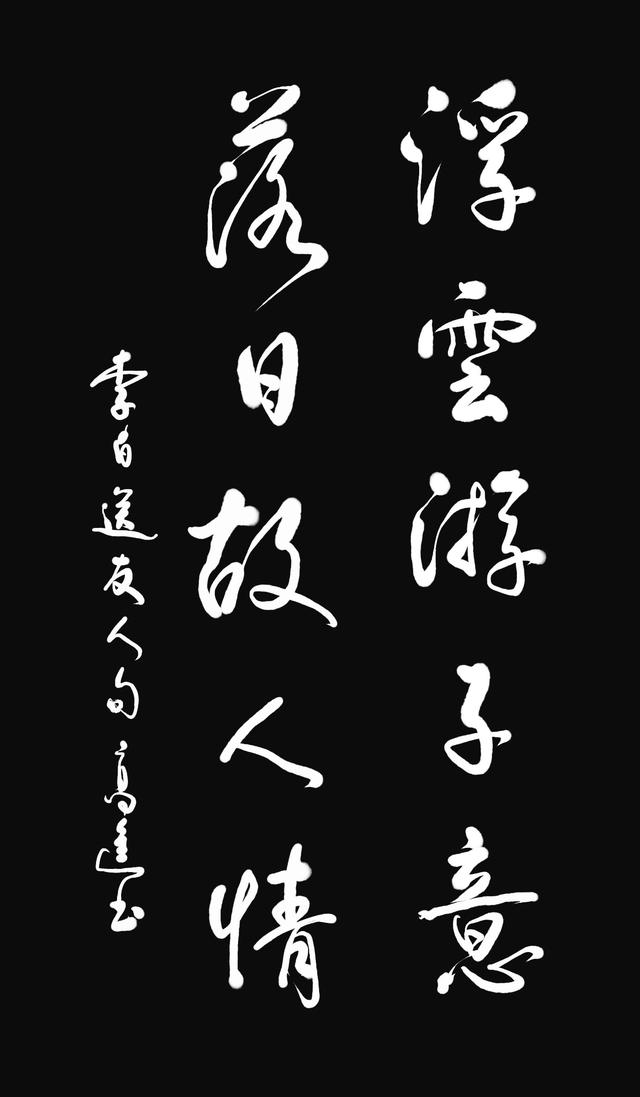 浮雲游子意
落日故人情
李白送友人句高進玉